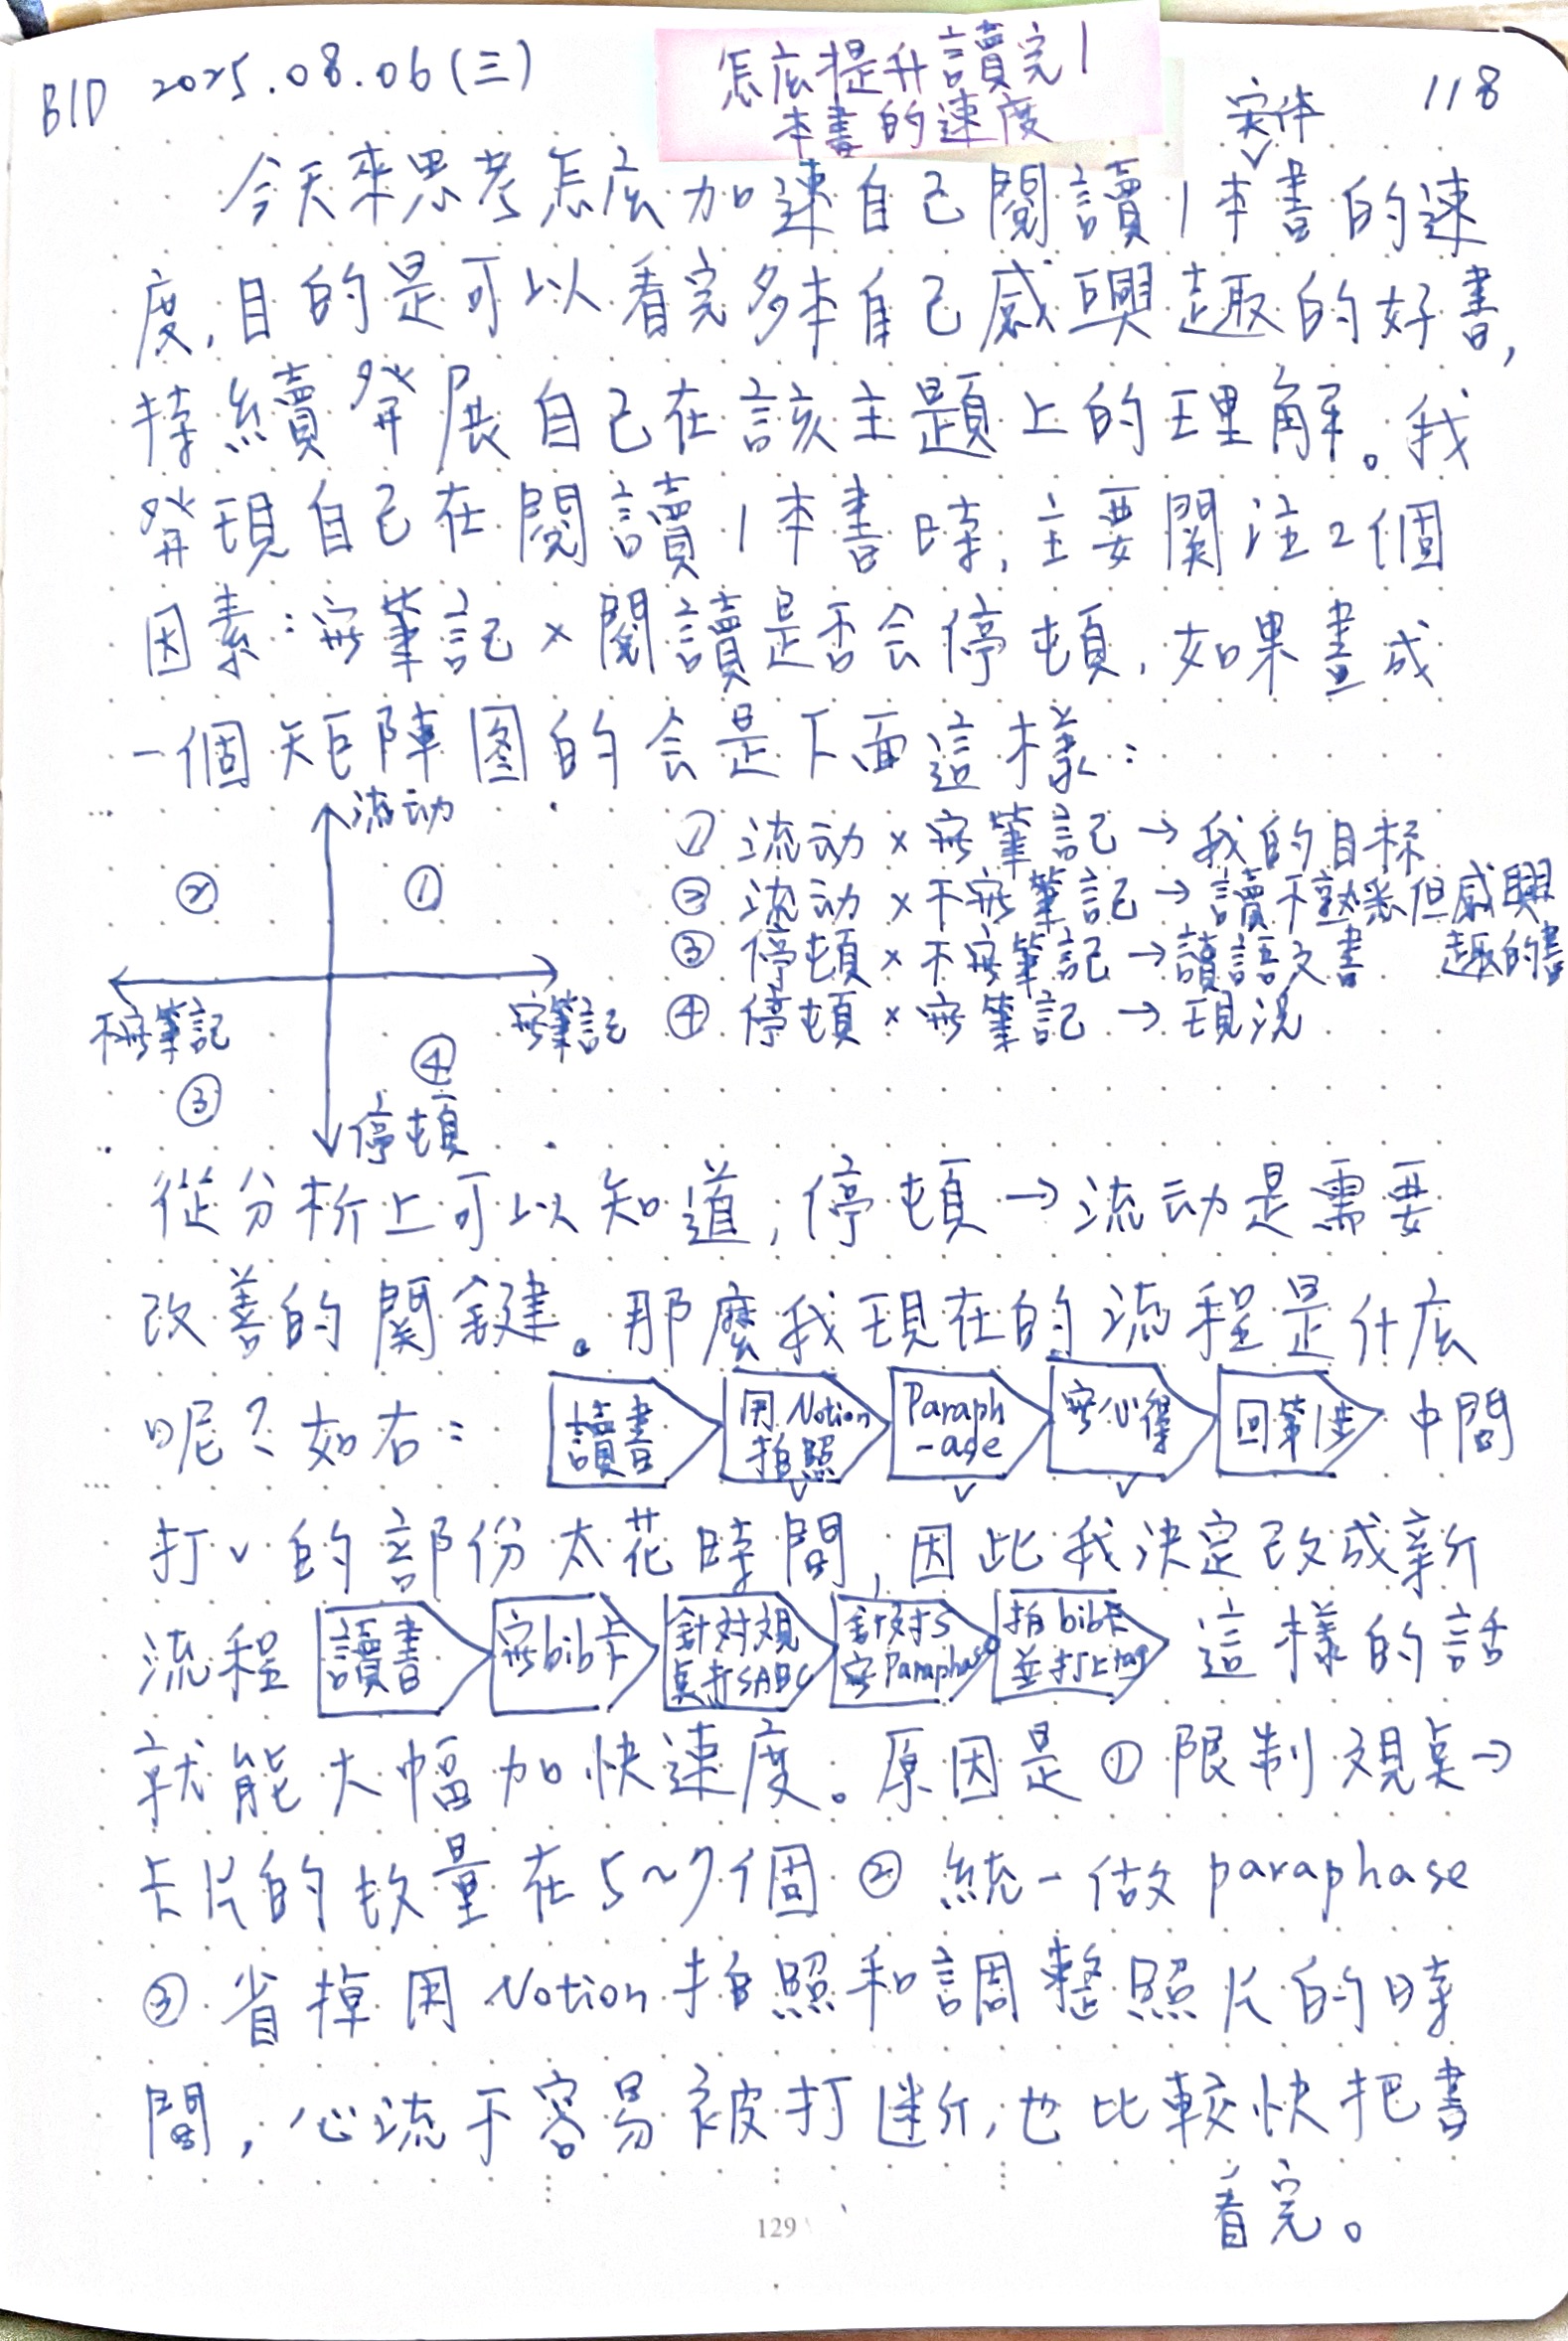 B1D 2025.08.06(三)
怎庅提升讀完1
本書的速度
118
实体
今天來思考怎庅加速自己閱讀1本書的速
度,目的是可以看完多本自己感興趣的好書,
持続賣發展自己在該主題上的理解。我
發現自己在閱讀1本書時,主要関注2個
因素:寫筆記×閱讀是否会停頓,如果畫成
一個矩陣图的会是下面這樣:
流动
② ①
不寫筆記 寫筆記
③ ④
停頓
① 流动×寫筆記→我的目标
② 流动×不寫筆記→讀不熟悉但感興
趣的書
③ 停頓×不寫筆記→讀語文書
④ 停頓×寫筆記→現況
從分析上可以知道,停頓→流动是需要
改善的関鍵。那麼我現在的流程是什庅
呢?如右:
讀書
用Notion
拍照
Paraph
-ase
寫心得
回第1步
中間
打∨的部份太花時間,因此我決定改成新
流程
讀書
寫bib卡
針对观
点打SABC
針对S
寫Paraphase
拍bib卡
並打上tag
這樣的話
就能大幅加快速度。原因是①限制观点→
卡片的数量在5~7個 ②統一做paraphase
③省掉用Notion拍照和調整照片的時
間,心流不容易被打断,也比較快把書
看完。
129